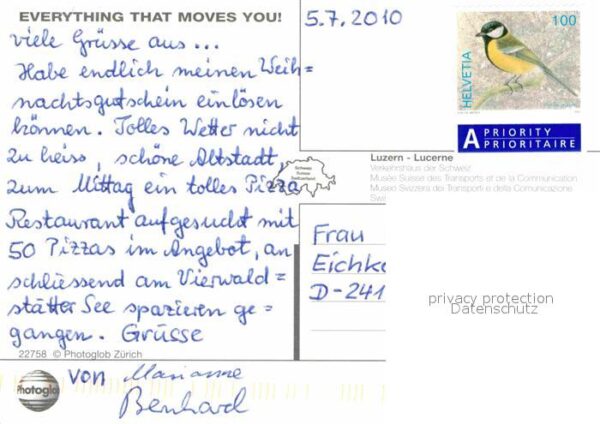 EVERYTHING THAT MOVES YOU!
viele Grüsse aus...
Habe endlich meinen Weih=
nachtsgutschein einlösen
können. Tolles Wetter nicht
zu heiss, schöne Altstadt,
zum Mittag ein tolles Pizza
Restaurant aufgesucht mit
50 Pizzas im Angebot, an
schliessend am Vierwald=
stätter See spazieren ge=
gangen. Grüsse
22758 © Photoglob Zürich
Photoglob
von Marianne
Bernhard
5.7.2010
100
HELVETIA
A PRIORITY
PRIORITAIRE
Luzern - Lucerne
Verkehrshaus der Schweiz
Musée Suisse des Transports et de la Communication
Museo Svizzera dei Transporti e della Comunicazione
Swi
Schweiz
Suisse
Switzerland
Frau
Eichke
D-241
privacy protection
Datenschutz